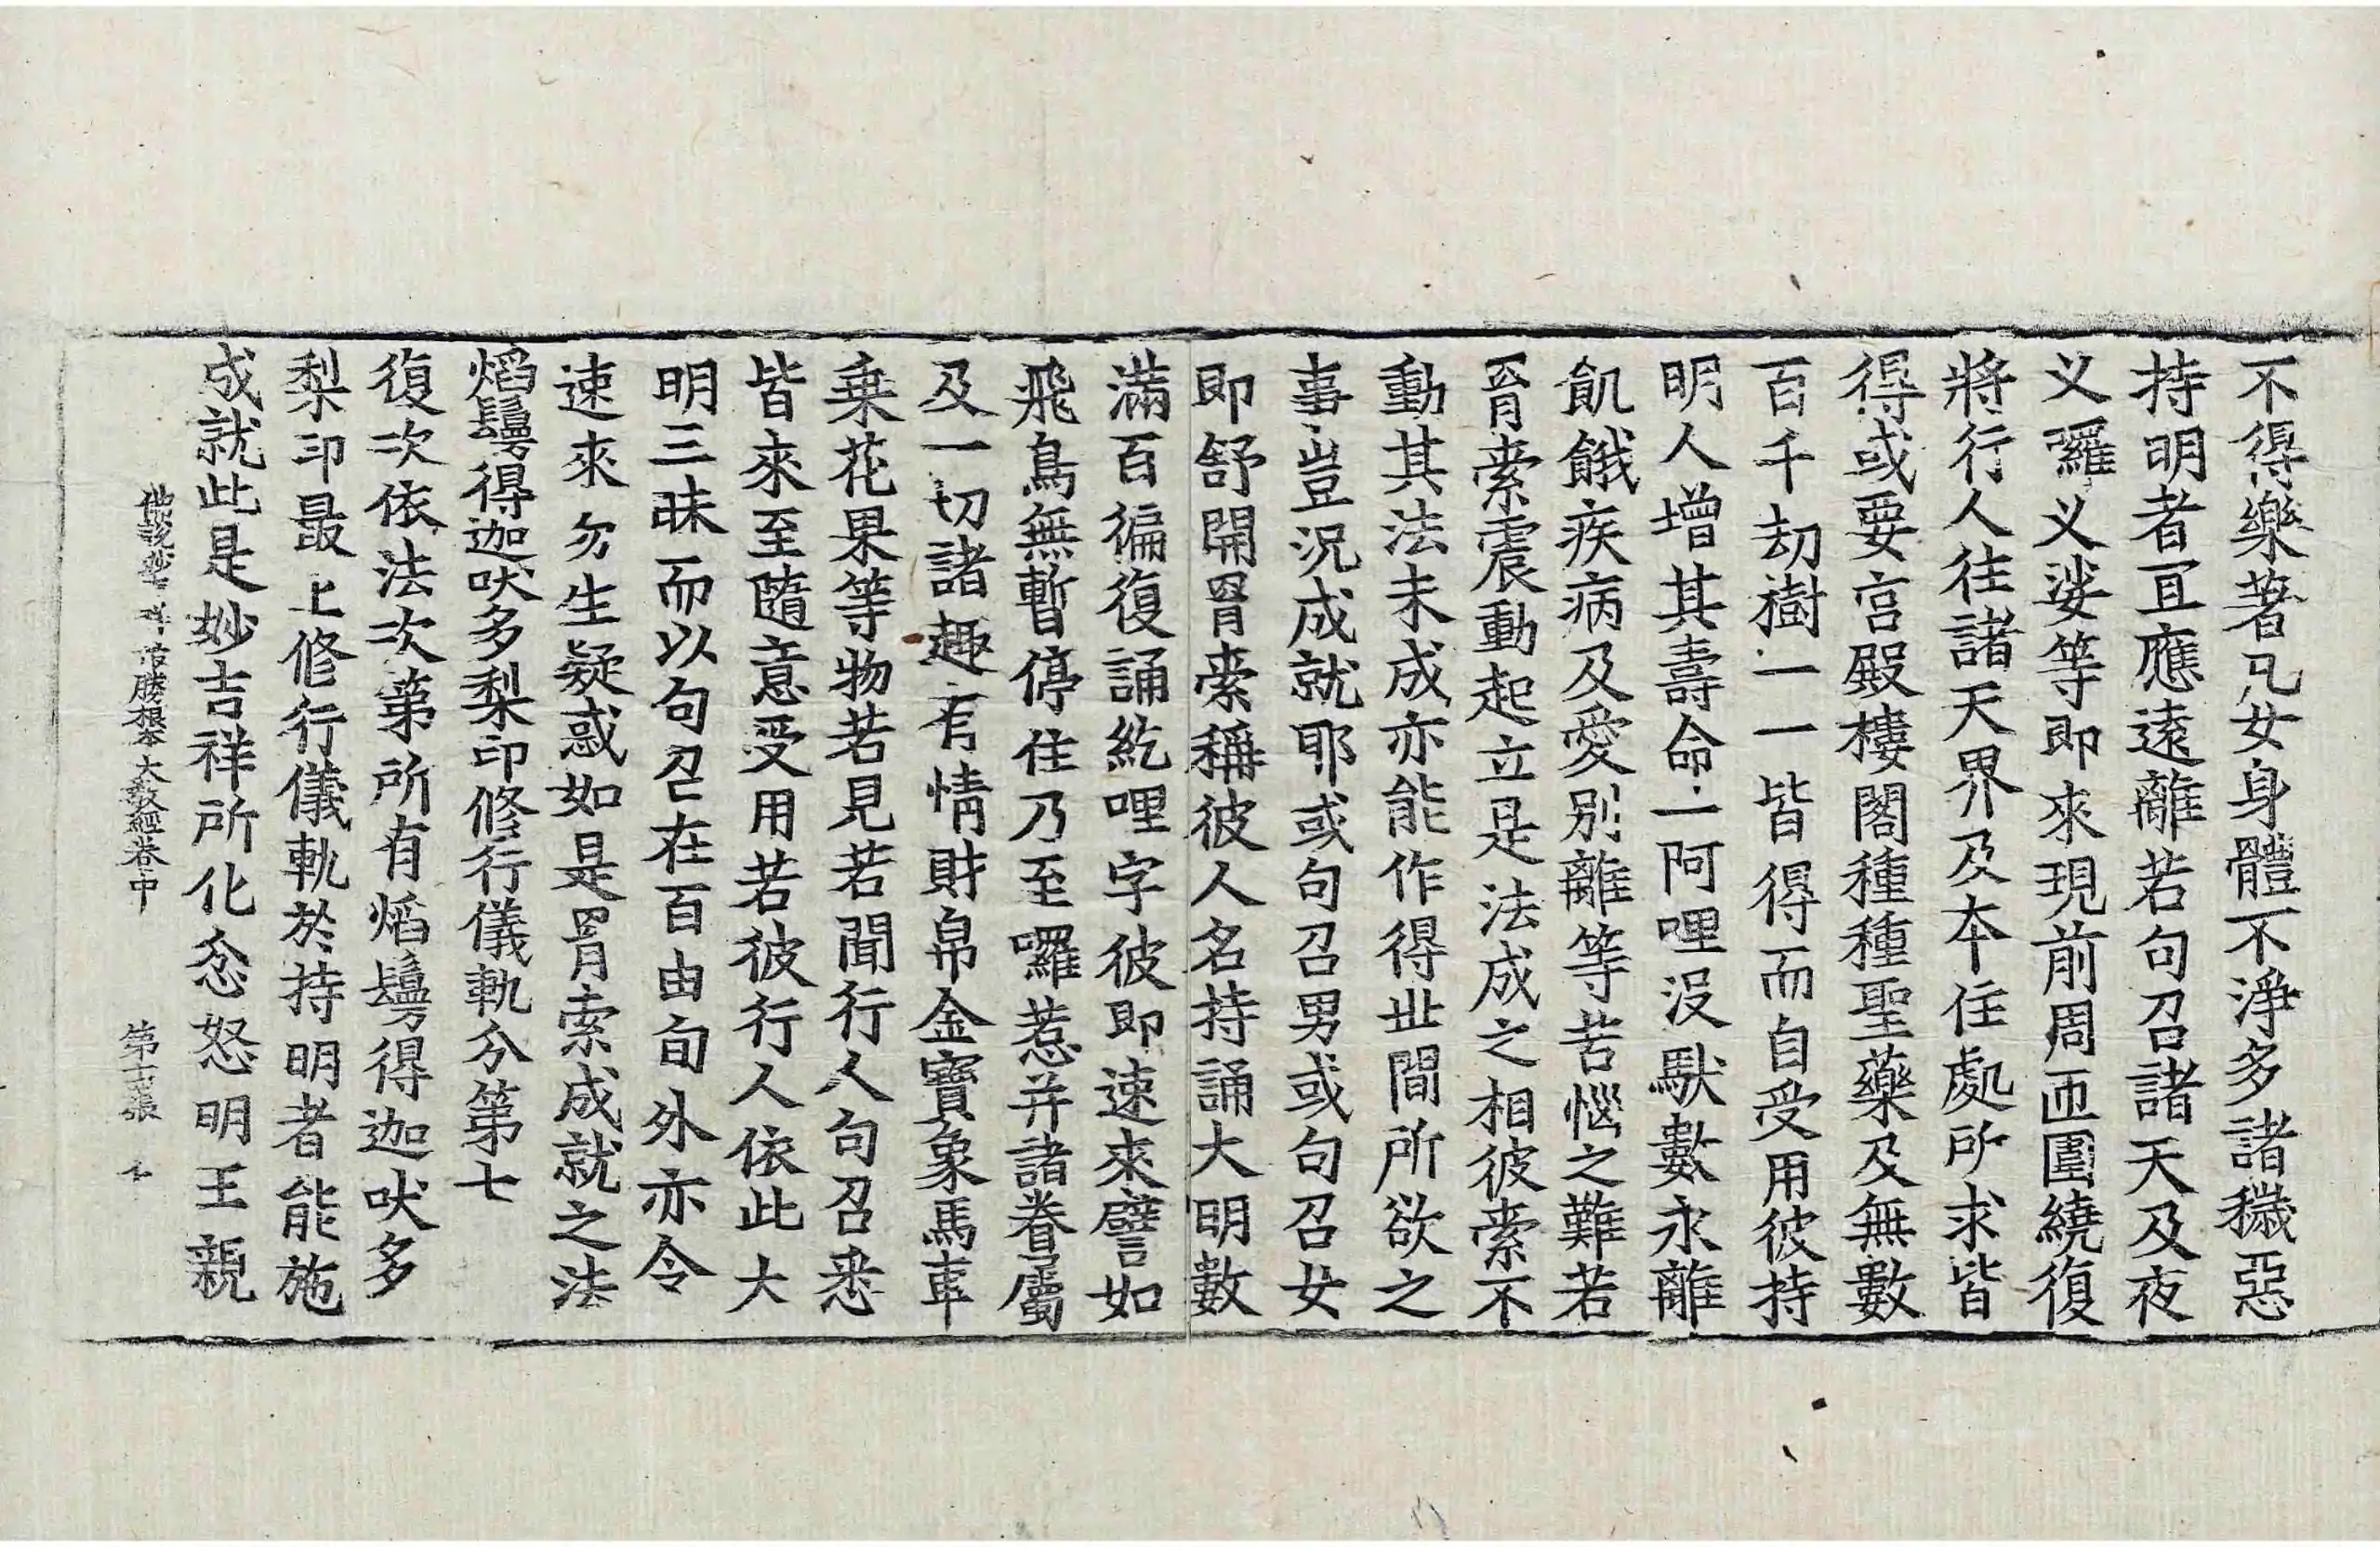 不得樂著凡女身體不淨多諸穢惡
持明者冝應遠離若句召諸天及夜
义囉义娑等即來現前周匝圍繞復
將行人往諸天界及本住處所求皆
得或要宫殿樓閣種種聖藥及無數
百千劫樹一一皆得而自受用彼持
明人增其壽命一阿哩没馱數永離
飢餓疾病及愛別離等苦惱之難若
罥索震動起立是法成之相彼索不
動其法未成亦能作得世間所欲之
事豈況成就耶或句召男或句召女
即舒開罥索稱彼人名持誦大明數
滿百徧復誦紇哩字彼即速來譬如
飛鳥無暫停住乃至囉惹并諸眷屬
及一切諸趣有情財帛金寶象馬車
乗花果等物若見若聞行人句召悉
皆來至隨意受用若彼行人依此大
明三昧而以句召在百由旬外亦令
速來勿生疑惑如是罥索成就之法
焰鬘得迦吠多梨印修行儀軌分第七
復次依法次第所有焰鬘得迦吠多
梨印最上修行儀軌於持明者能施
成就此是妙吉祥所化忿怒明王親
佛說妙吉祥最勝根本大教經卷中 第十二張